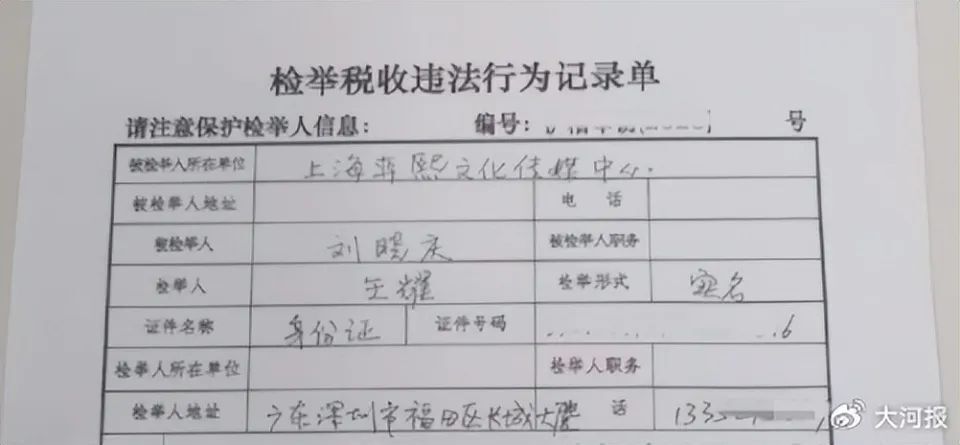 检举税收违法行为记录单
请注意保护检举人信息: 编号: 号
被检举人所在单位 上海 熙文化传媒中心.
被检举人地址 电 话
被检举人 刘晓庆 被检举人职务
检举人 王耀 检举形式 实名
证件名称 身份证 证件号码 6
检举人所在单位 检举人职务
检举人地址 广东深圳市福田区长城大 话 133
大河报